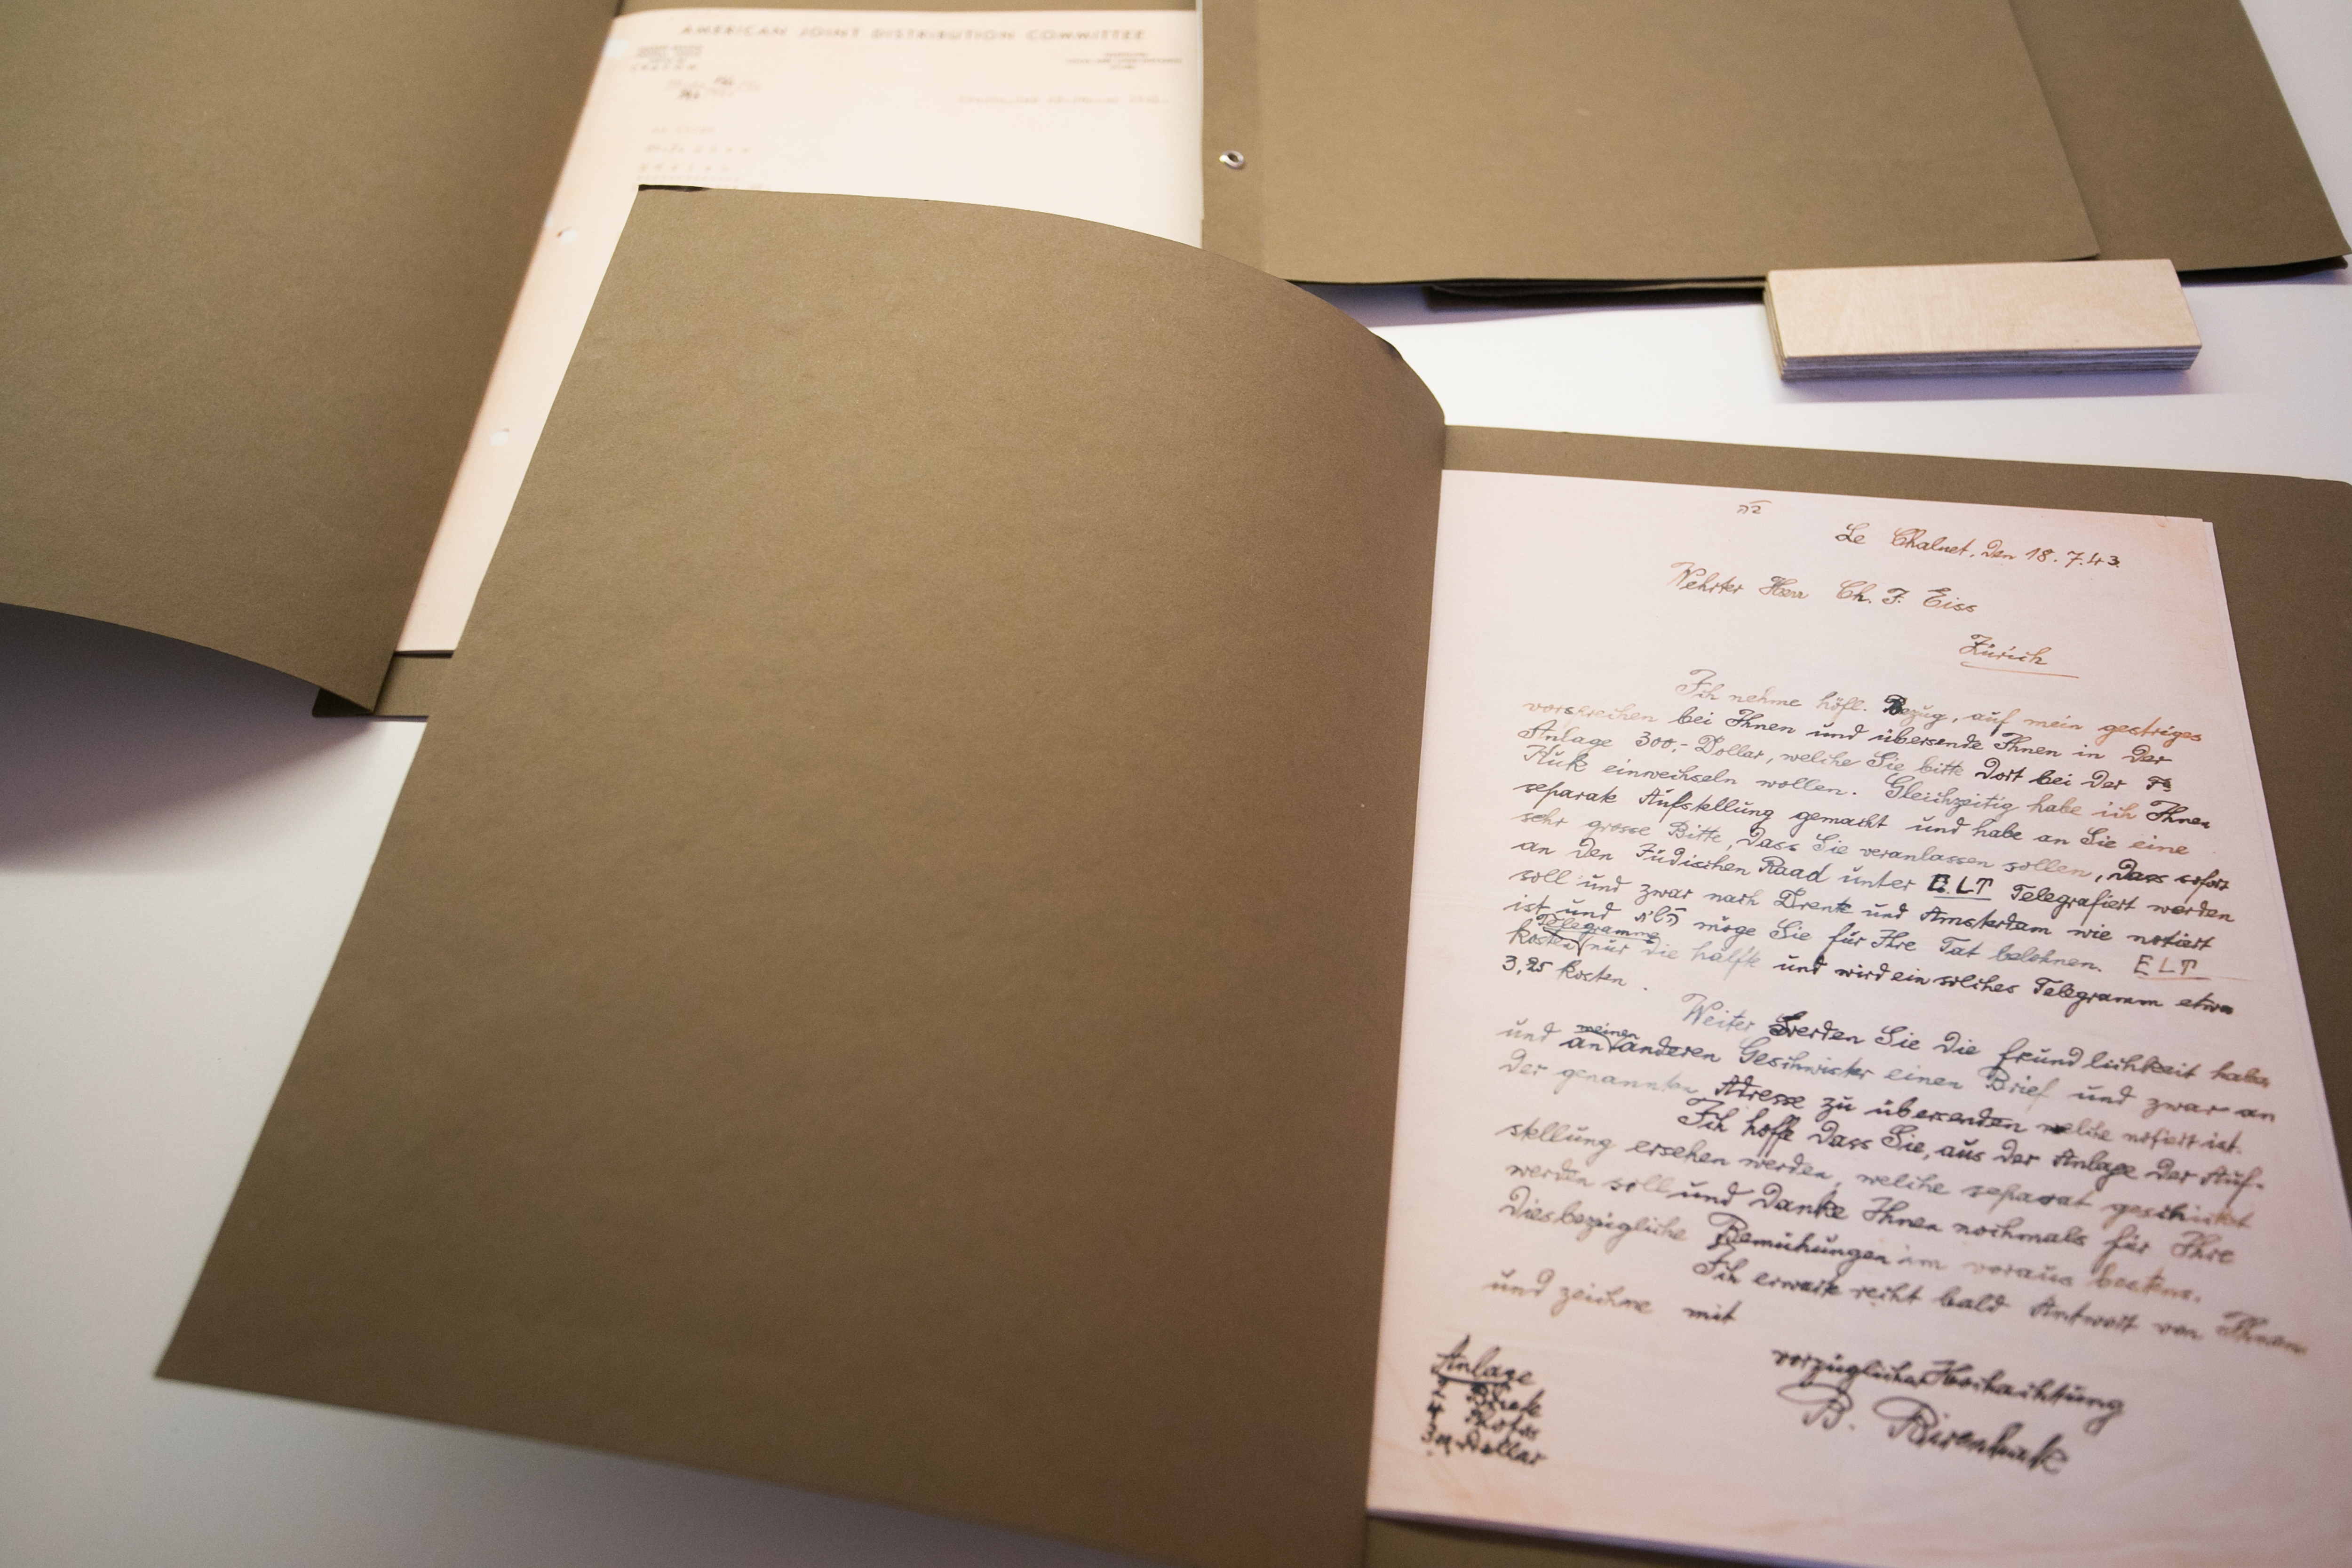 AMERICAN JOINT DISTRIBUTION COMMITTEE
Le Chalnet, den 18.7.43.
Wehrter Herr Ch. J. Eiss
Zürich
Ich nehme höfl. Bezug, auf mein gestriges
vorsprechen bei Ihnen und übersende Ihnen in der
Anlage 300,- Dollar, welche Sie bitte dort bei der Fa
einwechseln wollen. Gleichzeitig habe ich Ihnen
separate Aufstellung gemacht und habe an Sie eine
sehr grosse Bitte, dass Sie veranlassen sollen, dass sofort
an den Jüdischen Raad unter E.L.T Telegrafiert werden
soll und zwar nach Drente und Amsterdam wie notiert
ist und möge Sie für Ihre Tat belohnen. ELT
Telegramme
kosten nur die hälfte und wird ein solches Telegramm etwa
3,25 kosten.
Weiter werden Sie die freundlichkeit haben
meinen
und an anderen Geschwister einen Brief und zwar an
der genannten Adresse zu übersenden welche notiert ist.
Ich hoffe dass Sie, aus der Anlage der Auf-
stellung ersehen werden, welche separat geschickt
werden soll und Danke Ihnen nochmals für Ihre
diesbezügliche Bemühungen im voraus bestens.
Ich erwarte recht bald Antwort von Ihnen
und zeichne mit
vorzüglicher Hochachtung
B.
Anlage
2 Briefe
4 Photos
300 Dollar